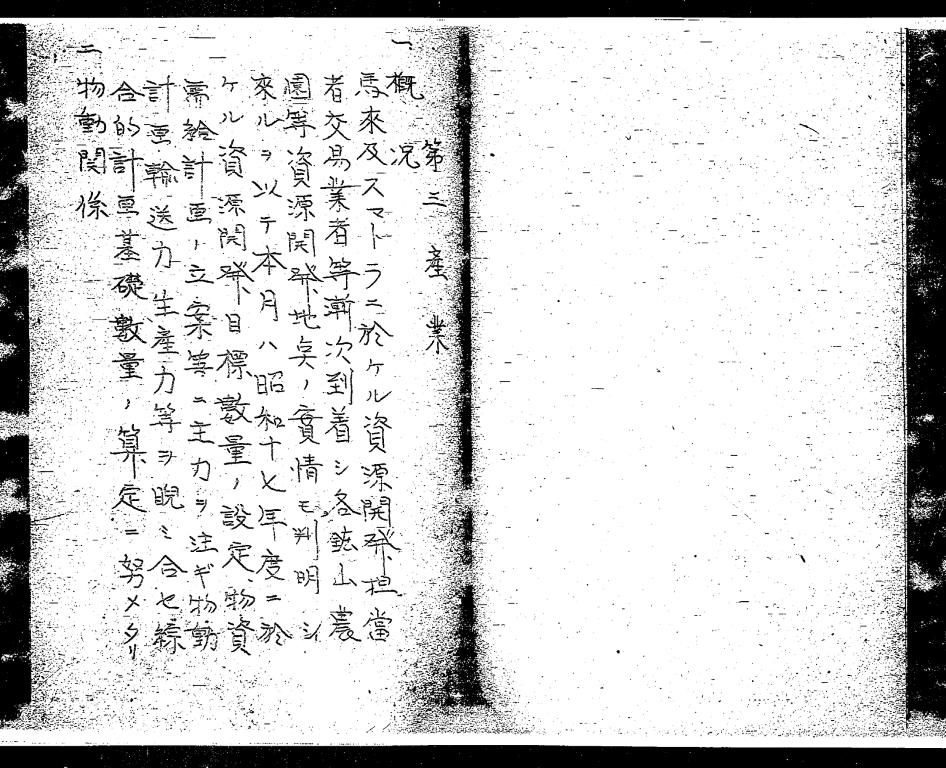 第三 産業
一、概況
馬來及スマトラニ於ケル資源開発担當
者交易業者等漸次到着シ各鉱山農
園等資源開発地点ノ實情モ判明シ
來ルヲ以テ本月ハ昭和十七年度ニ於
ケル資源開発目標數量ノ設定、物資
需給計画ノ立案等ニ主力ヲ注ギ物動
計画輸送力生産力等ヲ睨ミ合セ綜
合的計画基礎數量ノ算定ニ努メタリ
二、物動関係